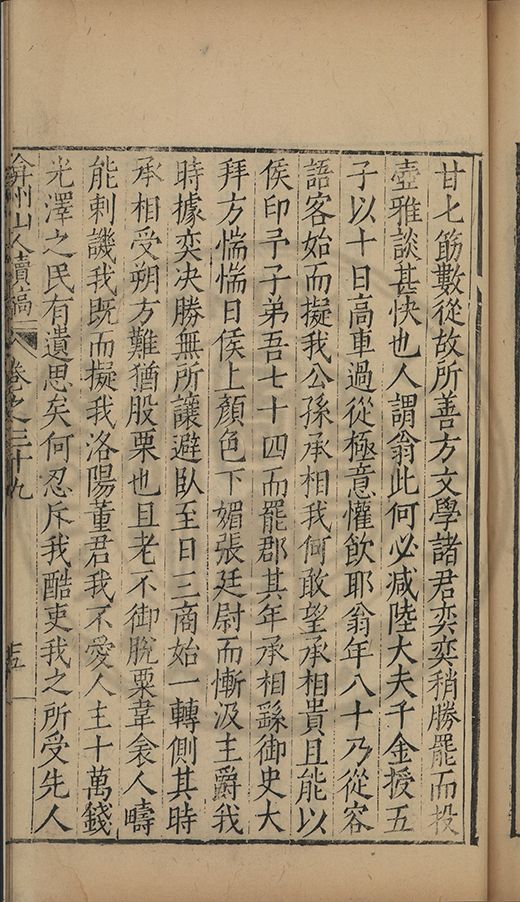 甘七筯數從故所善方文學諸君奕奕稍勝罷而投
壺雅談甚快也人謂翁此何必减陸大夫千金授五
子以十日高車過從極意懽飲耶翁年八十乃從容
語客始而擬我公孫承相我何敢望承相貴且能以
侯印予子弟吾七十四而罷郡其年承相繇御史大
拜方惴惴日俟上顏色下媚張廷尉而慚汲主爵我
時據奕决勝無所讓避臥至日三商始一轉側其時
承相受朔方難猶股栗也且老不御脫粟韋衾人疇
能刺譏我既而擬我洛陽董君我不愛人主十萬錢
光澤之民有遺思矣何忍斥我酷吏我之所受先人
弇州山人續稿 卷之三十九 十五